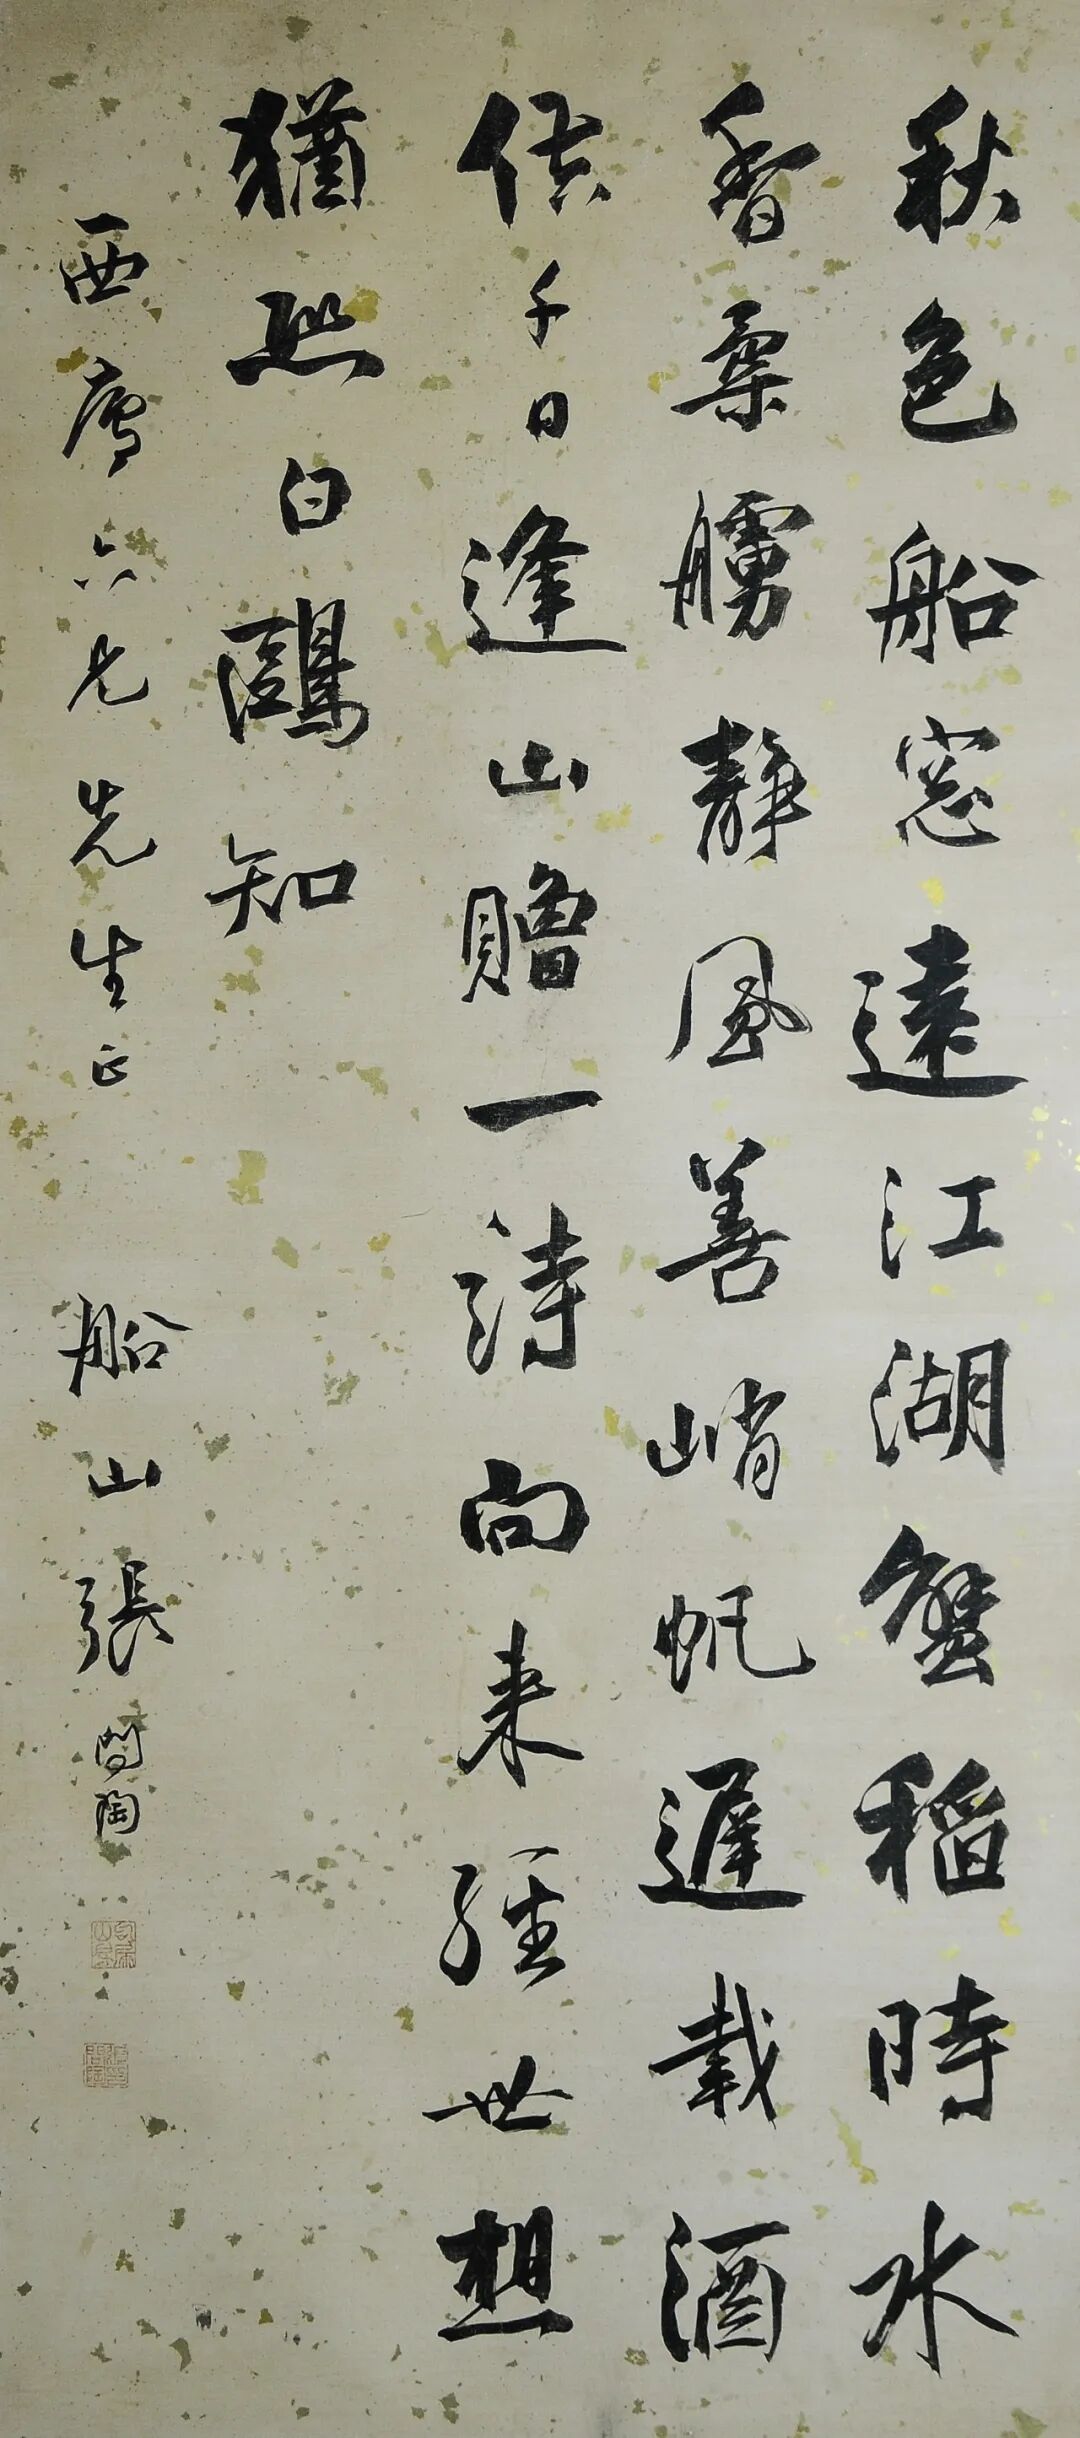 秋色船窓遠江湖蟹稻時水
香柔艣靜風善峭帆遲載酒
供千日逢山贈一詩向来經世想
猶然白鷗知
西廬六兄先生正
船山張問陶